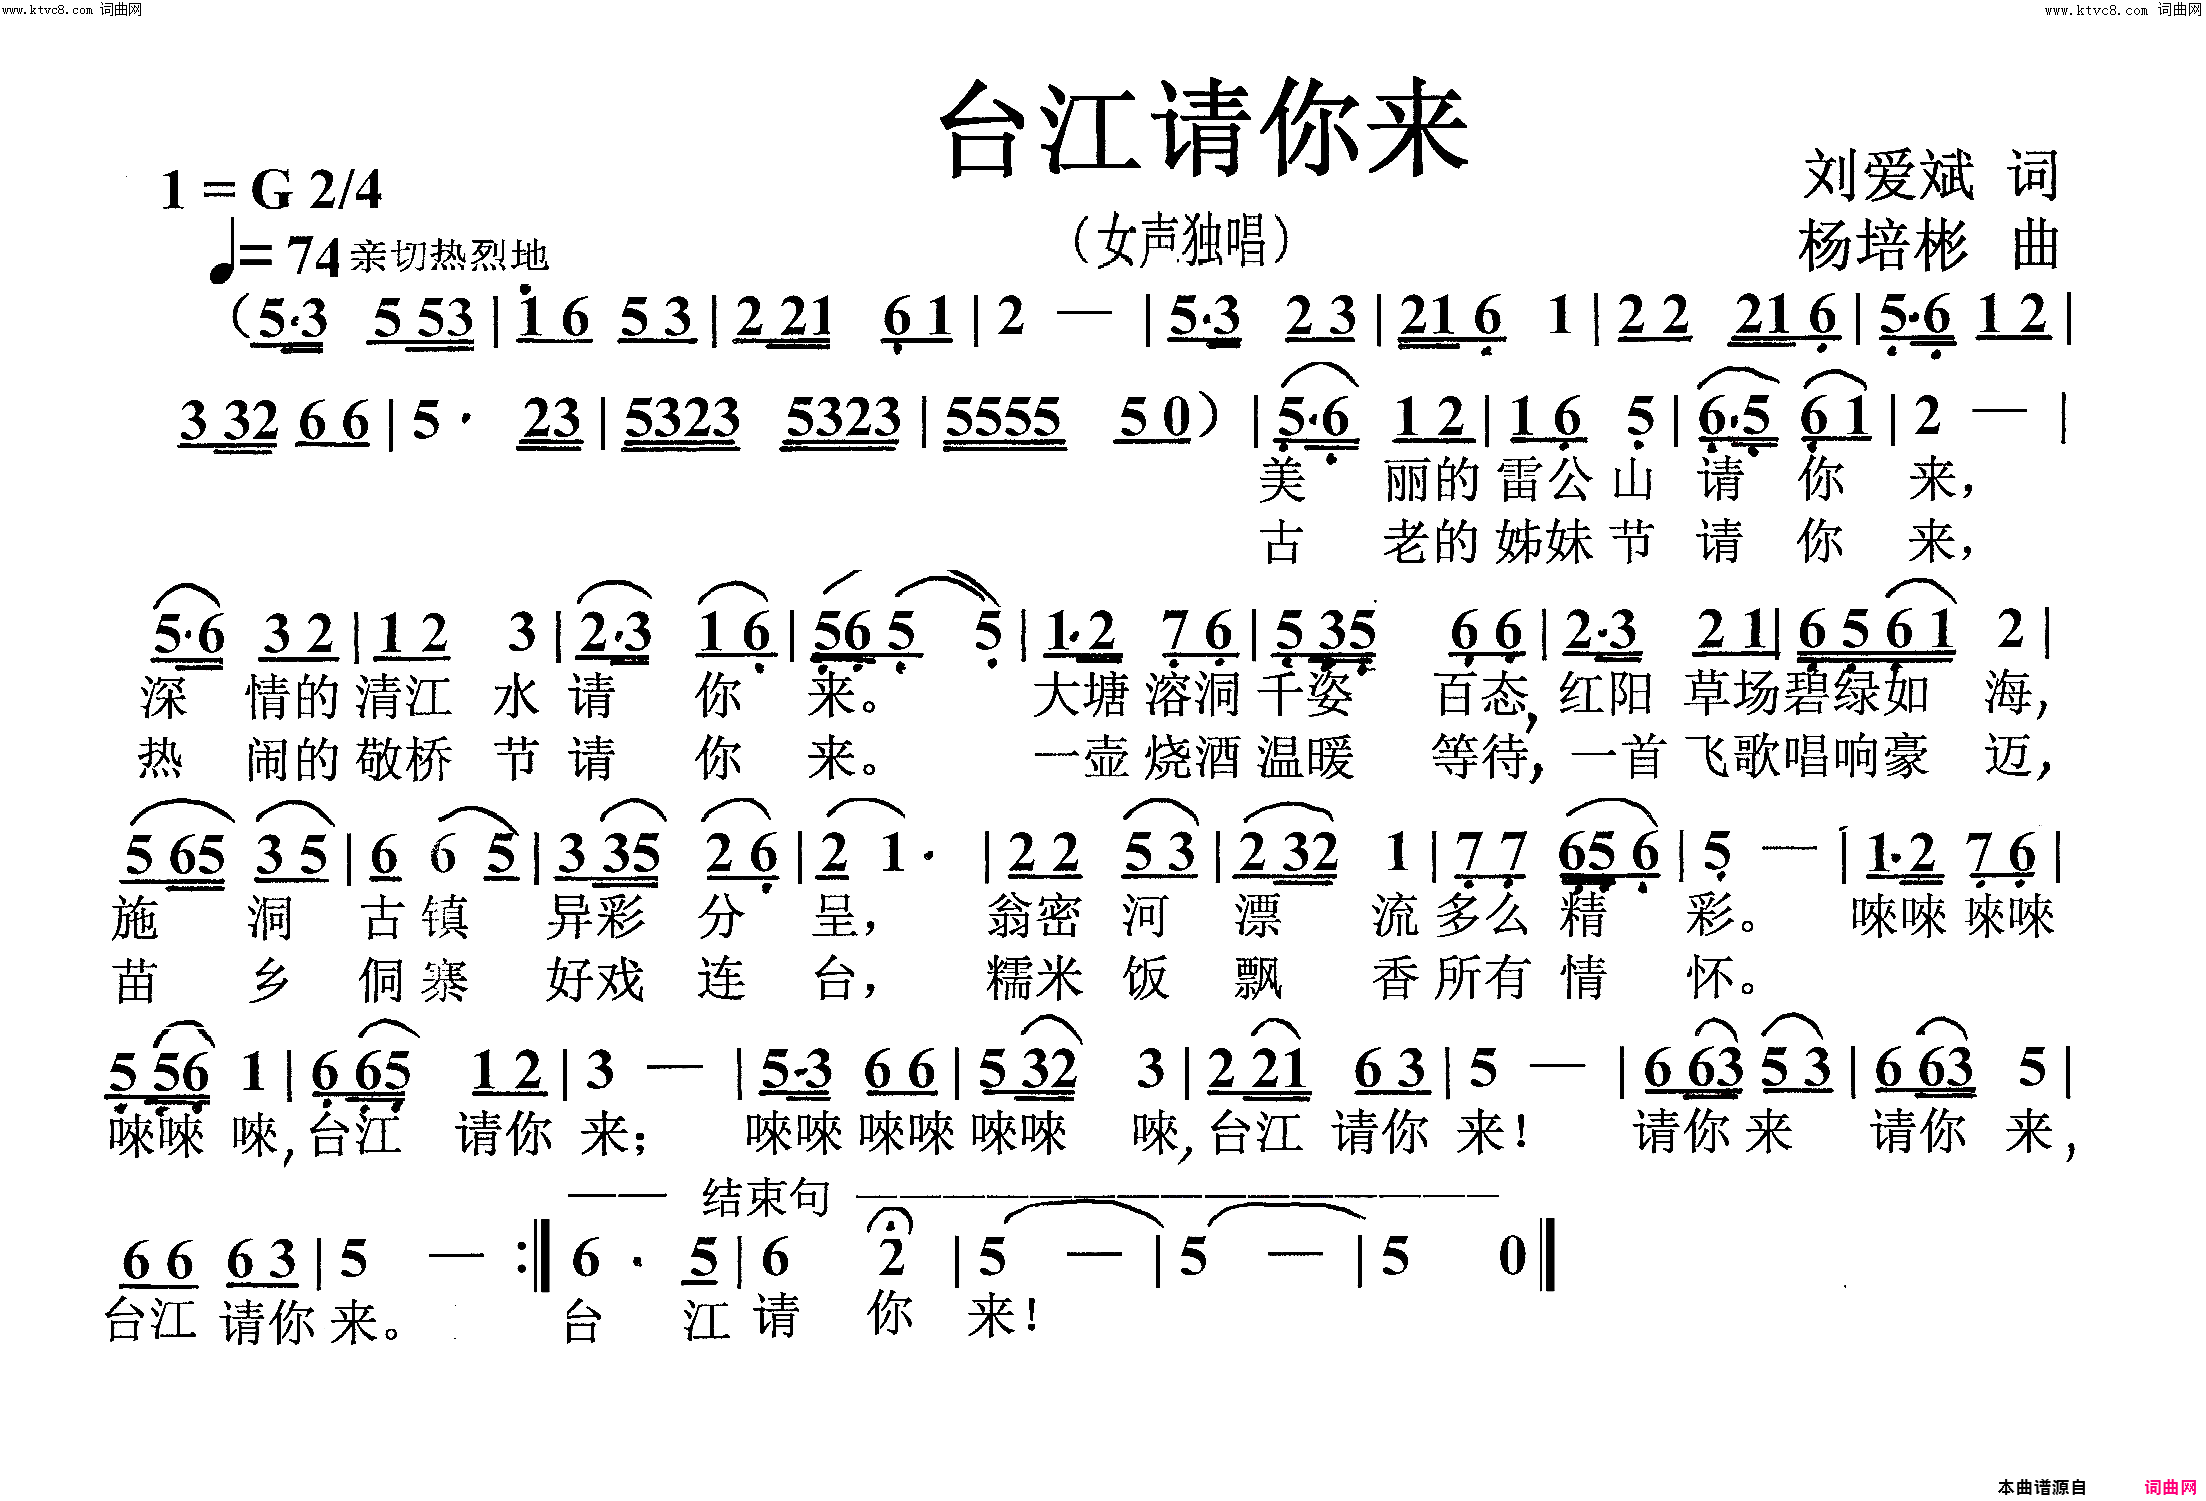 www.ktvc8.com 词曲网
www.ktvc8.com 词曲网
台江请你来
1 = G 2/4
刘爱斌 词
♩= 74 亲切热烈地
（女声独唱）
杨培彬 曲
（5·3 5 53 | 1 6 5 3 | 2 21 6 1 | 2 — | 5·3 2 3 | 21 6 1 | 2 2 21 6 | 5·6 1 2 |
3 32 6 6 | 5 · 23 | 5323 5323 | 5555 5 0） | 5·6 1 2 | 1 6 5 | 6·5 6 1 | 2 — |
美 丽的 雷公 山 请 你 来，
古 老的 姊妹 节 请 你 来，
5·6 3 2 | 1 2 3 | 2·3 1 6 | 56 5 5 | 1·2 7 6 | 5 35 6 6 | 2·3 2 1 | 6 5 6 1 2 |
深 情的 清江 水 请 你 来。 大塘 溶洞 千姿 百态, 红阳 草场 碧绿如 海,
热 闹的 敬桥 节 请 你 来。 一壶 烧酒 温暖 等待, 一首 飞歌 唱响豪 迈,
5 65 3 5 | 6 6 5 | 3 35 2 6 | 2 1 · | 2 2 5 3 | 2 32 1 | 7 7 65 6 | 5 — | 1·2 7 6 |
施 洞 古 镇 异彩 分 呈， 翁密 河 漂 流 多么 精 彩。 唻唻 唻唻
苗 乡 侗 寨 好戏 连 台， 糯米 饭 飘 香 所有 情 怀。
5 56 1 | 6 65 1 2 | 3 — | 5·3 6 6 | 5 32 3 | 2 21 6 3 | 5 — | 6 63 5 3 | 6 63 5 |
唻唻 唻, 台江 请你 来； 唻唻 唻唻 唻唻 唻, 台江 请你 来！ 请你 来 请你 来,
—— 结束句 ———————————————
6 6 6 3 | 5 — :‖ 6 · 5 | 6 2 | 5 — | 5 — | 5 0 ‖
台江 请你 来。 台 江 请 你 来！
本曲谱源自 词曲网